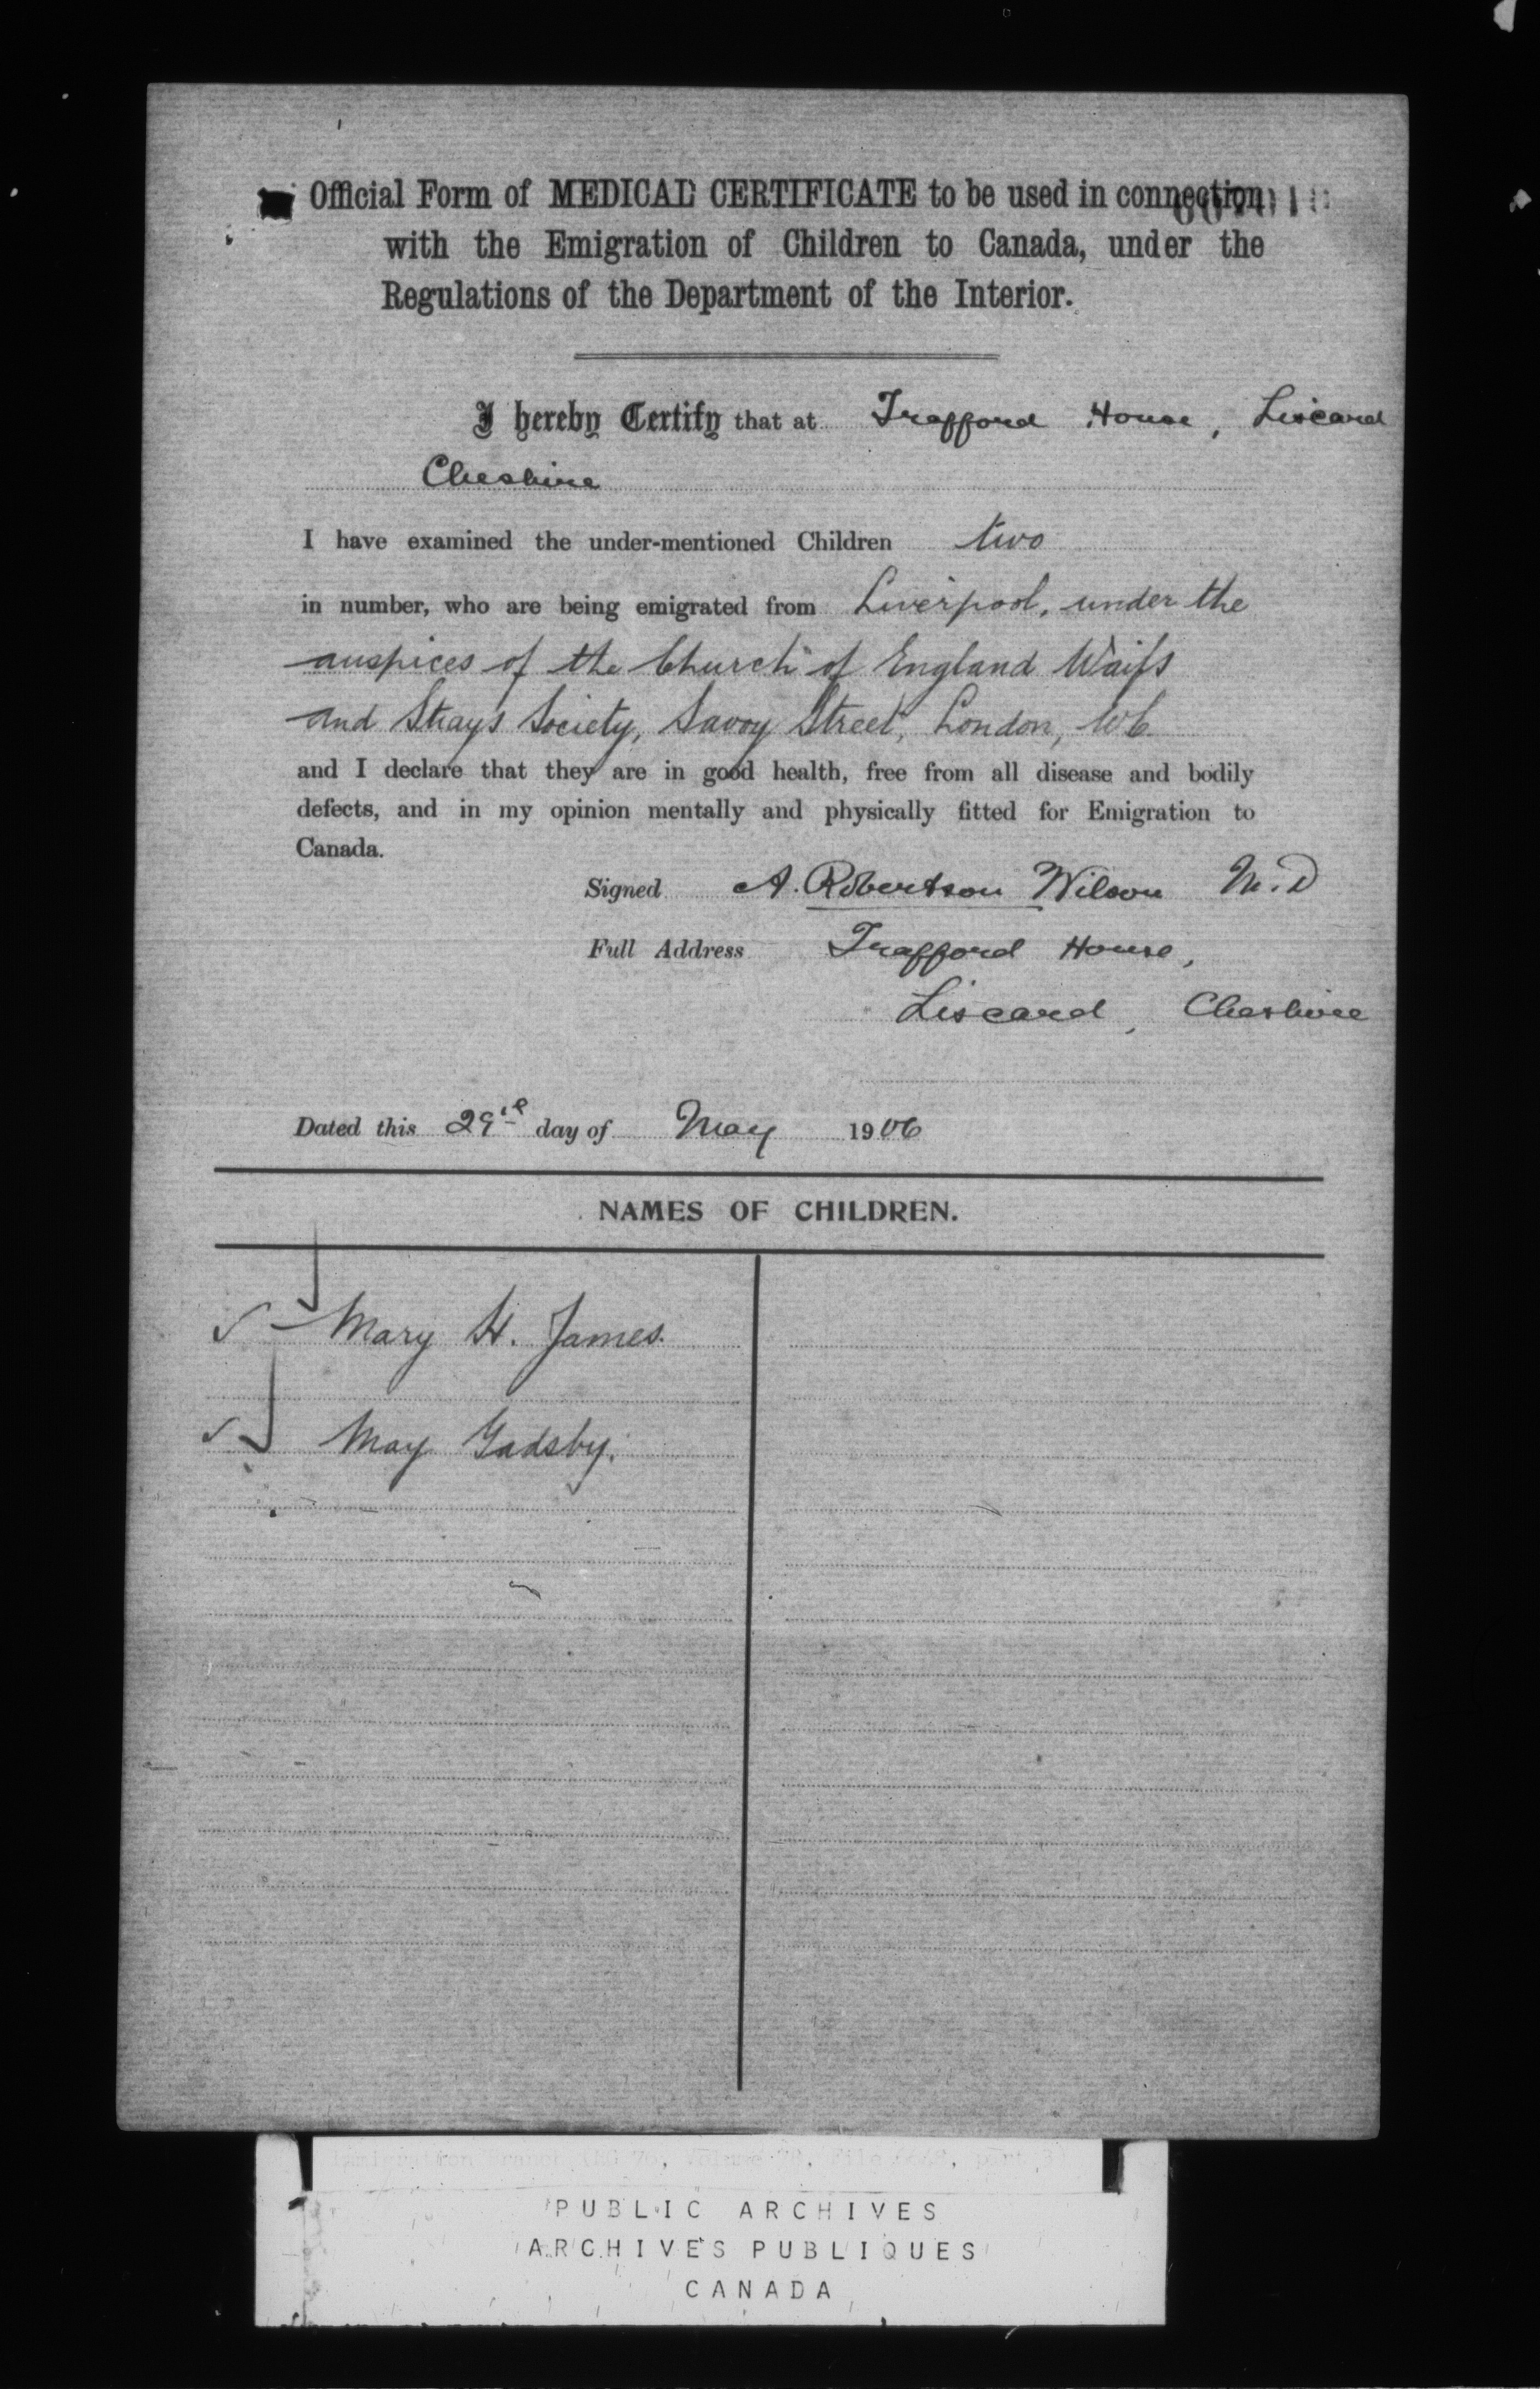 Official Form of MEDICAL CERTIFICATE to be used in connection
with the Emigration of Children to Canada, under the
Regulations of the Department of the Interior.
I hereby Certify that at Trafford House, Liscard
Cheshire
I have examined the under-mentioned Children two
in number, who are being emigrated from Liverpool, under the
auspices of the Church of England Waifs
and Strays Society, Savoy Street, London, WC
and I declare that they are in good health, free from all disease and bodily
defects, and in my opinion mentally and physically fitted for Emigration to
Canada.
Signed A. Robertson Wilson M.D
Full Address Trafford House,
Liscard, Cheshire
Dated this 29th day of May 1906
NAMES OF CHILDREN.
Mary H. James.
May Gadsby.
PUBLIC ARCHIVES
ARCHIVES PUBLIQUES
CANADA